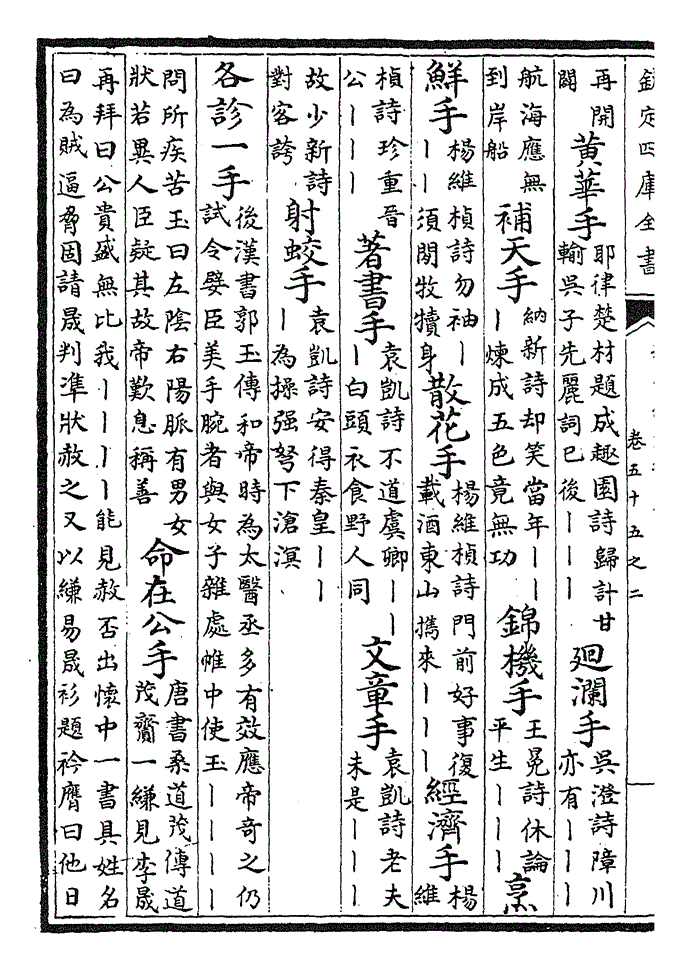 欽定四庫全書
卷五十五之二
再開闢 黄華手 耶律楚材題成趣園詩歸計甘輸吳子先麗詞已後丨丨丨 廻瀾手 吳澄詩障川亦有丨丨丨
航海應無到岸船 補天手 納新詩却笑當年丨丨丨煉成五色竟無功 錦機手 王冕詩休論平生丨丨丨 烹
鮮手 楊維楨詩勿袖丨丨須閱牧犢身 散花手 楊維楨詩門前好事復載酒東山攜來丨丨丨 經濟手 楊維
楨詩珍重晉公丨丨丨 著書手 袁凱詩不道虞卿丨丨丨白頭衣食野人同 文章手 袁凱詩老夫未是丨丨丨
故少新詩對客誇 射蛟手 袁凱詩安得秦皇丨丨丨為操强弩下滄溟
各診一手 後漢書郭玉傳和帝時為太醫丞多有效應帝奇之仍試令嬖臣美手腕者與女子雜處帷中使玉丨丨丨丨
問所疾苦玉曰左陰右陽脈有男女狀若異人臣疑其故帝歎息稱善 命在公手 唐書桑道茂傳道茂齎一縑見李晟
再拜曰公貴盛無比我丨丨丨丨能見赦否出懷中一書具姓名曰為賊逼脅固請晟判凖狀赦之又以縑易晟衫題衿膺曰他日